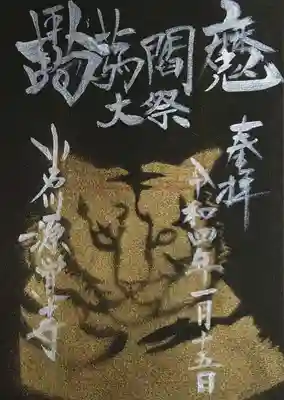 奉拝
蒟蒻閻魔
大祭
令和四年一月十五日
小石川源覚寺